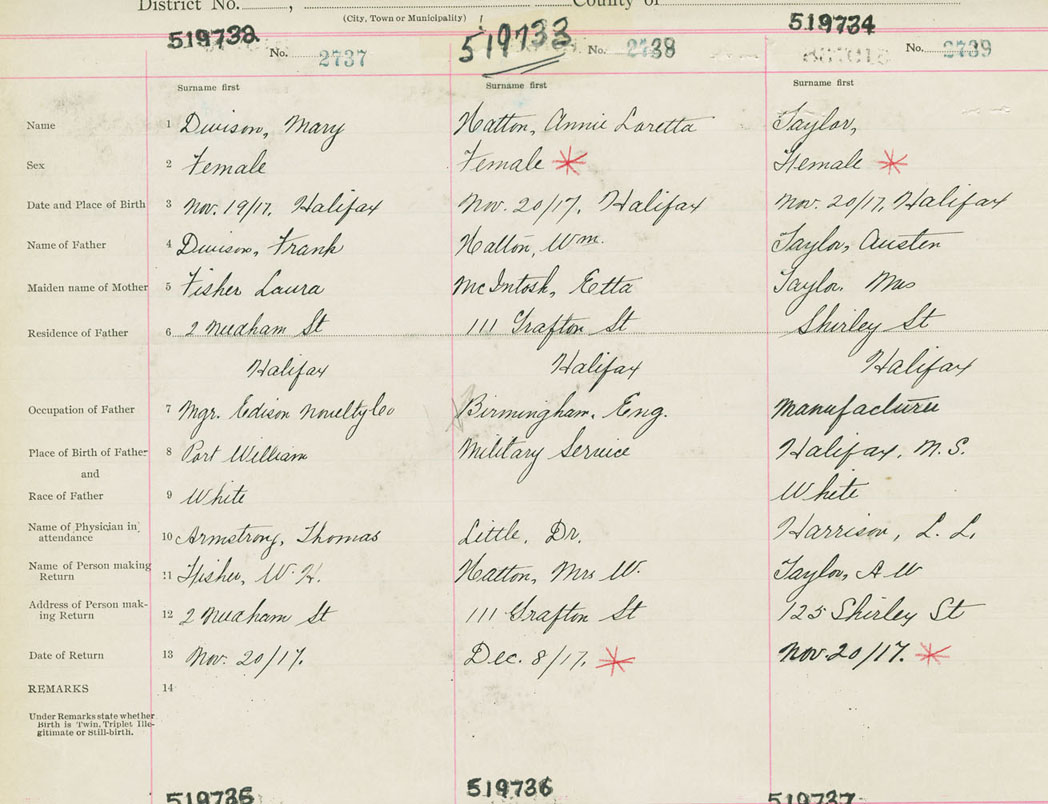 District No. , County of
(City, Town or Municipality)
519733 519734
No. 2737 No. 2738 No. 2739
Surname first Surname first Surname first
Name 1 Divison, Mary Hatton, Annie Loretta Taylor,
Sex 2 Female Female Female
Date and Place of Birth 3 Nov. 19/17, Halifax Nov. 20/17, Halifax Nov. 20/17, Halifax
Name of Father 4 Divison, Frank Hatton, Wm. Taylor, Austen
Maiden name of Mother 5 Fisher Laura McIntosh, Etta Taylor, Mrs
Residence of Father 6 2 Needham St 111 Grafton St Shirley St
Halifax Halifax Halifax
Occupation of Father 7 Mgr. Edison Novelty Co Birmingham, Eng. Manufacturer
Place of Birth of Father 8 Port William Military Service Halifax, N.S.
and
Race of Father 9 White White
Name of Physician in attendance 10 Armstrong, Thomas Little, Dr. Harrison, L. L.
Name of Person making Return 11 Fisher, W. H. Hatton, Mrs W. Taylor, A W
Address of Person mak-
ing Return 12 2 Needham St 111 Grafton St 125 Shirley St
Date of Return 13 Nov. 20/17. Dec. 8/17. Nov. 20/17.
REMARKS 14
Under Remarks state whether
Birth is Twin, Triplet, Ille-
gitimate or Still-birth.
519736 519737